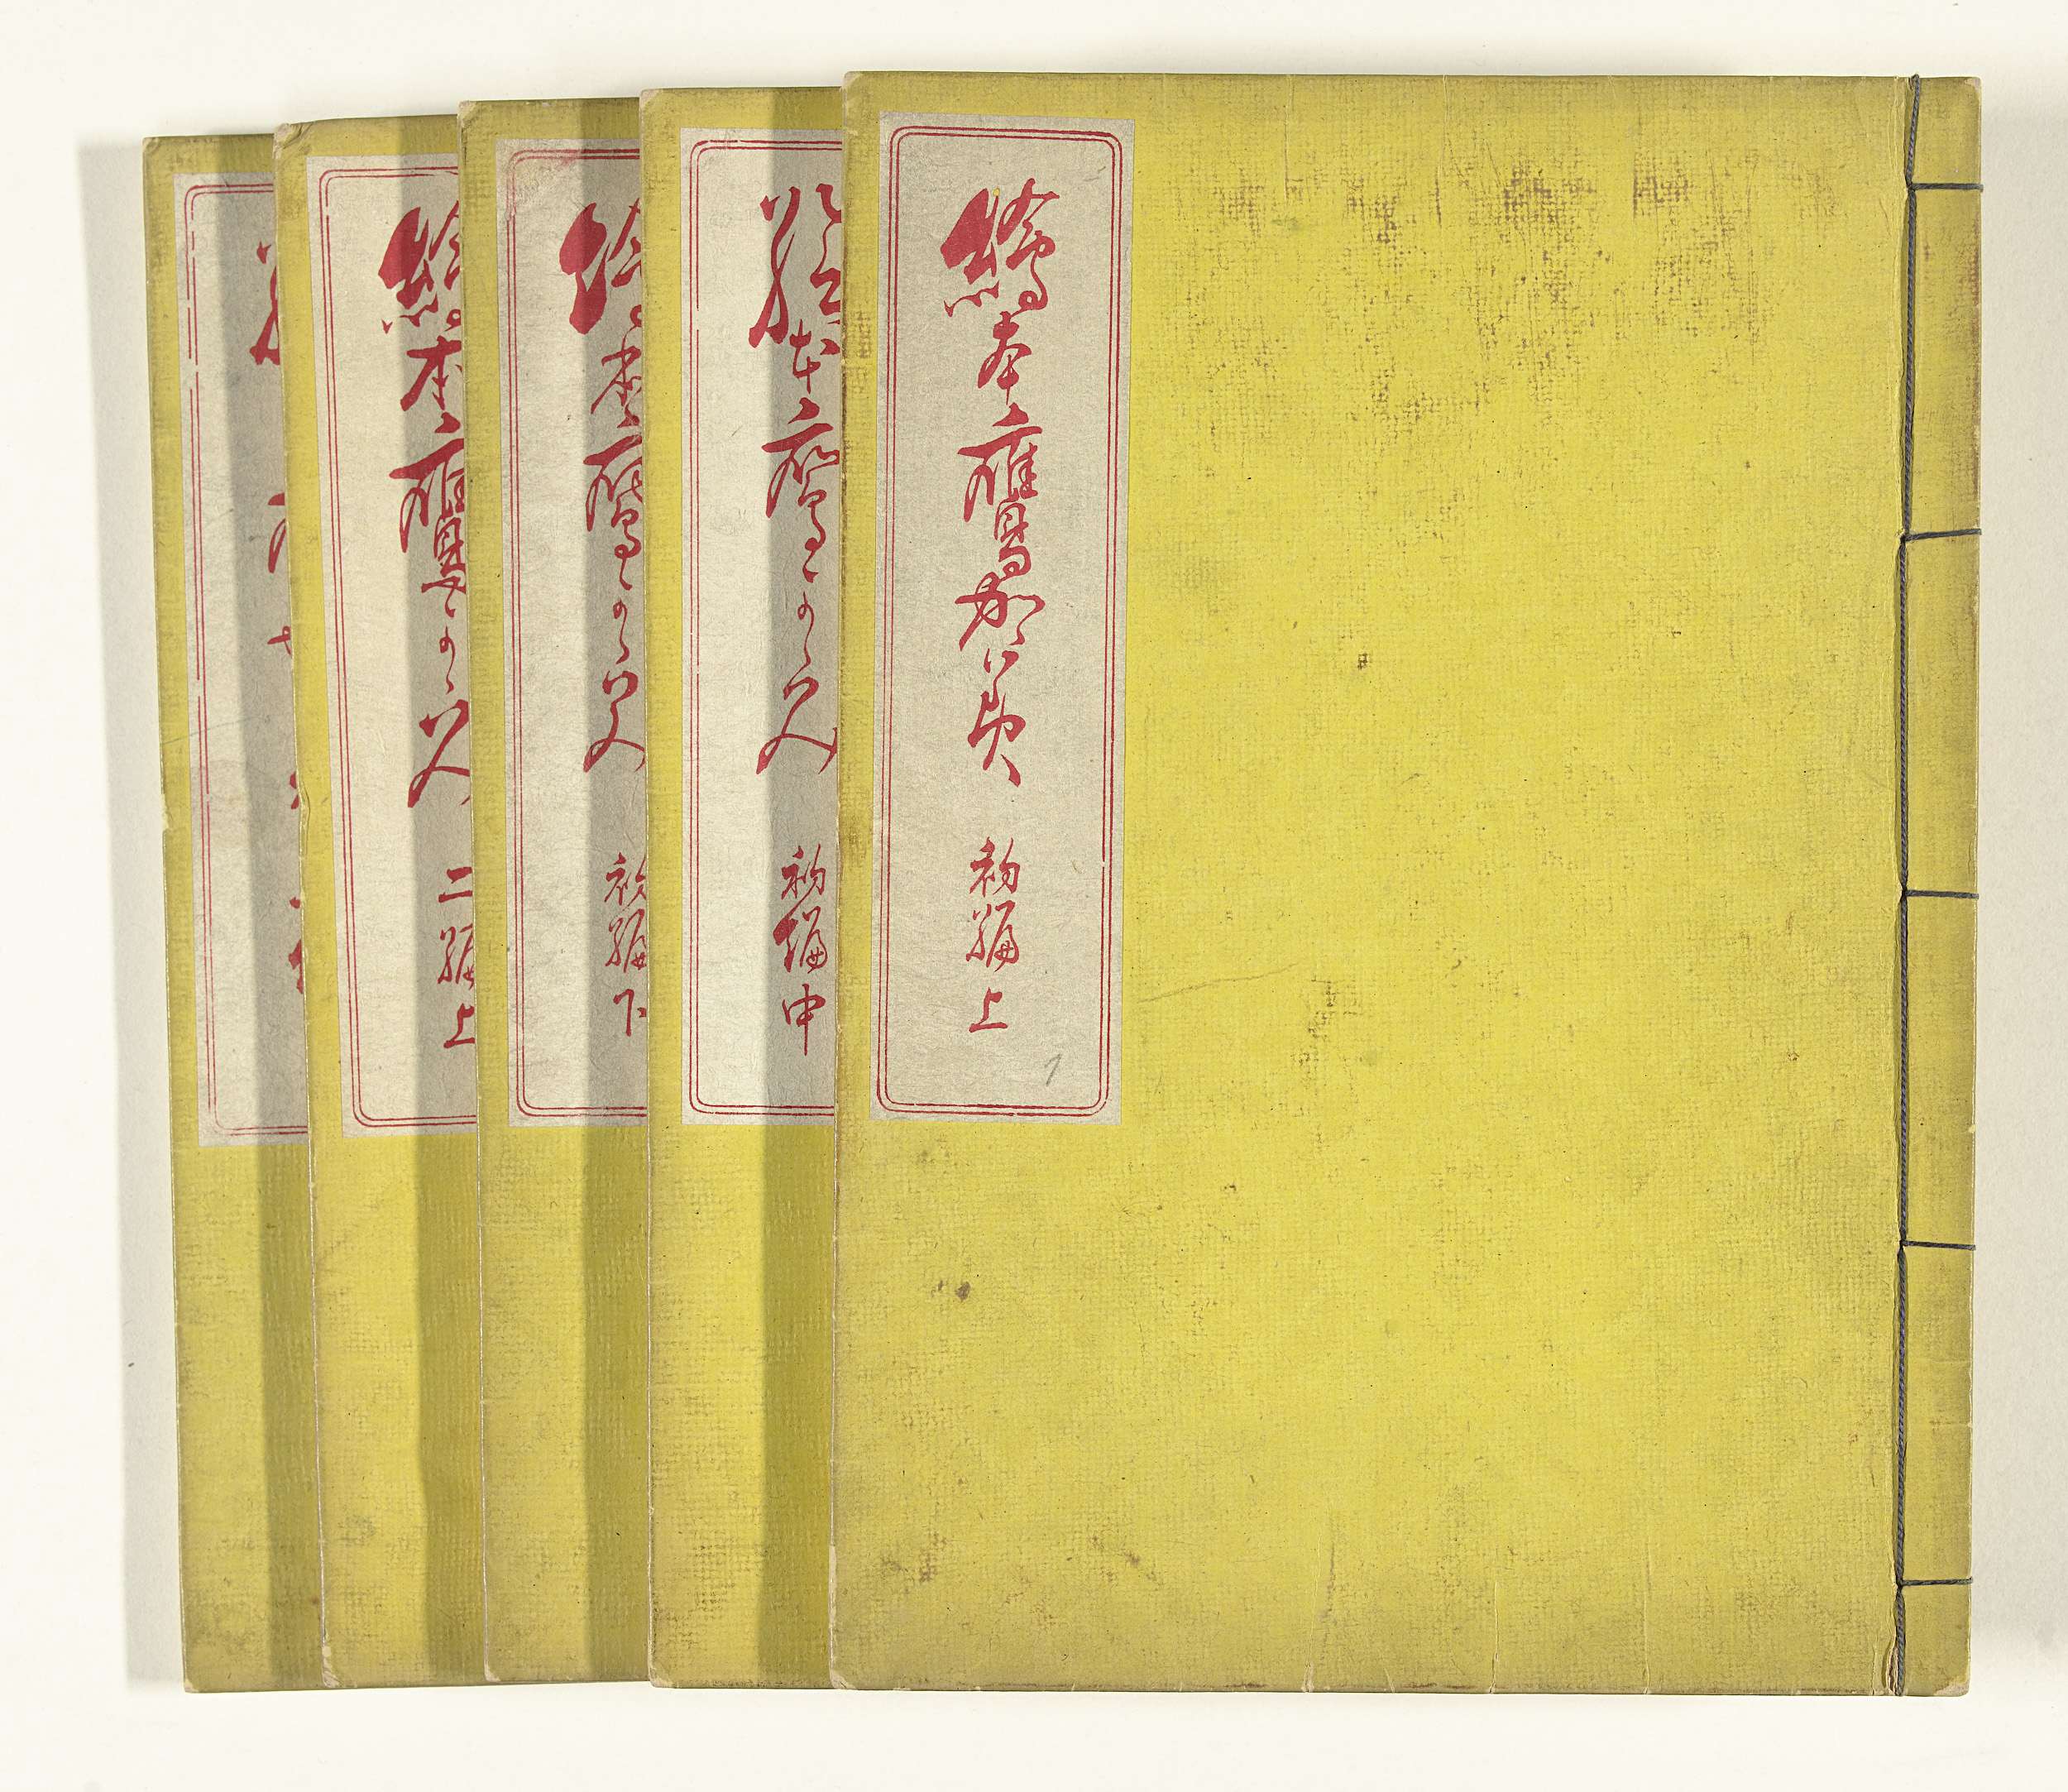 繪本鷹加ゞ美 初編 上
絵本鷹かゞみ 初編 中
絵本鷹かゞみ 初編 下
絵本鷹かゞみ 二編 上